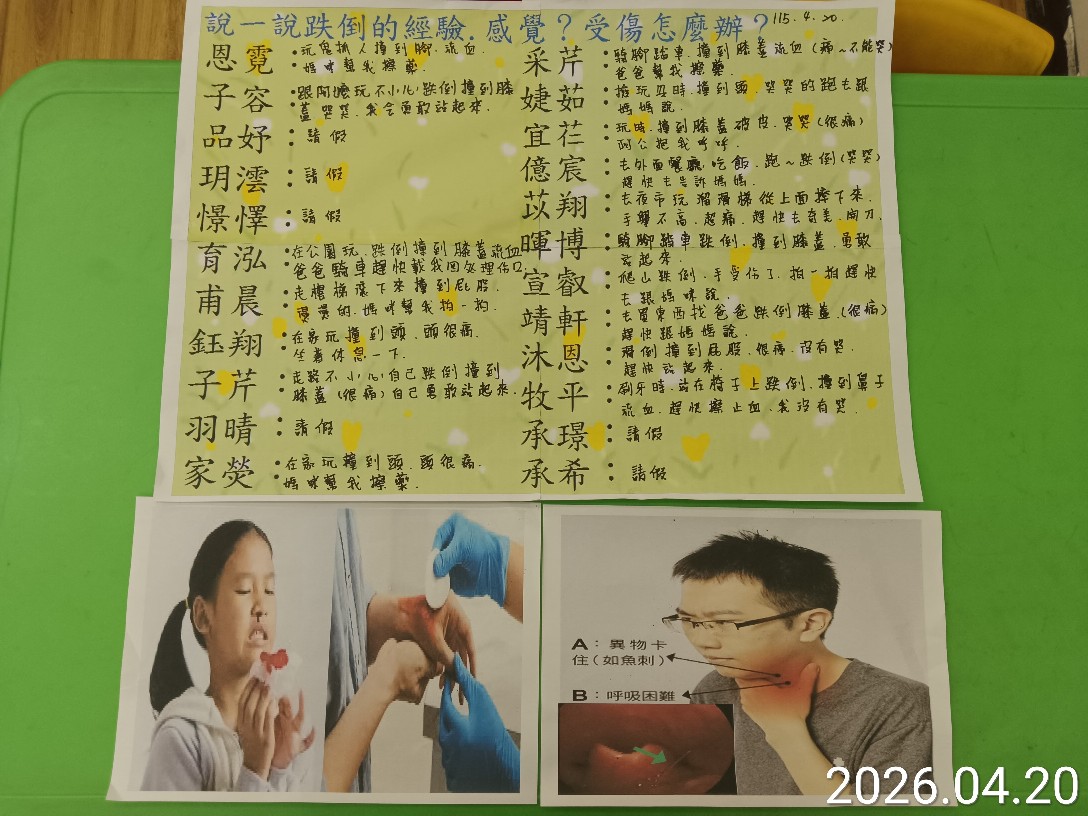 說一說跌倒的經驗.感覺？受傷怎麼辦？115.4.20.
恩霓
•玩鬼抓人撞到腳.流血.
媽咪幫我擦藥.
子容
•跟阿嬤玩不小心跌倒撞到膝
蓋哭哭.我會勇敢站起來.
品妤：請假
玥澐：請假
憬懌：請假
育泓
•在公園玩.跌倒撞到膝蓋流血
爸爸騎車趕快載我回處理傷口.
甫晨
•走樓梯滾下來撞到屁股.
媽咪幫我拍一拍.
鈺翔
•在家玩撞到頭.頭很痛.
坐著休息一下.
子芹
•走路不小心自己跌倒撞到
膝蓋(很痛)自己勇敢站起來.
羽晴：請假
家熒
•在家玩撞到頭.頭很痛.
媽咪幫我擦藥.
采芹
•騎腳踏車.撞到膝蓋流血(痛~不能哭)
爸爸幫我擦藥.
婕茹
•撿玩具時.撞到頭.哭哭的跑去跟
媽媽說.
宜芢
•玩時.撞到膝蓋破皮.哭哭(很痛)
阿公抱我呼呼.
億宸
•去外面餐廳吃飯.跑~跌倒(哭哭)
趕快去告訴媽媽.
苡翔
•去夜市玩溜滑梯從上面摔下來.
手舉不高.超痛.趕快去奇美.開刀.
暉博
•騎腳踏車跌倒.撞到膝蓋.勇敢
站起來.
宣叡
•爬山跌倒.手受傷了.拍一拍趕快
去跟媽咪說.
靖軒
•去買東西找爸爸跌倒膝蓋.(很痛)
趕快跟媽媽說.
沐恩
•滑倒撞到屁股.很痛.沒有哭.
趕快站起來.
牧平
•刷牙時.站在椅子上跌倒.撞到鼻子
流血.趕快擦止血.我沒有哭.
承璟：請假
承希：請假
A：異物卡
住(如魚刺)
B：呼吸困難
2026.04.20